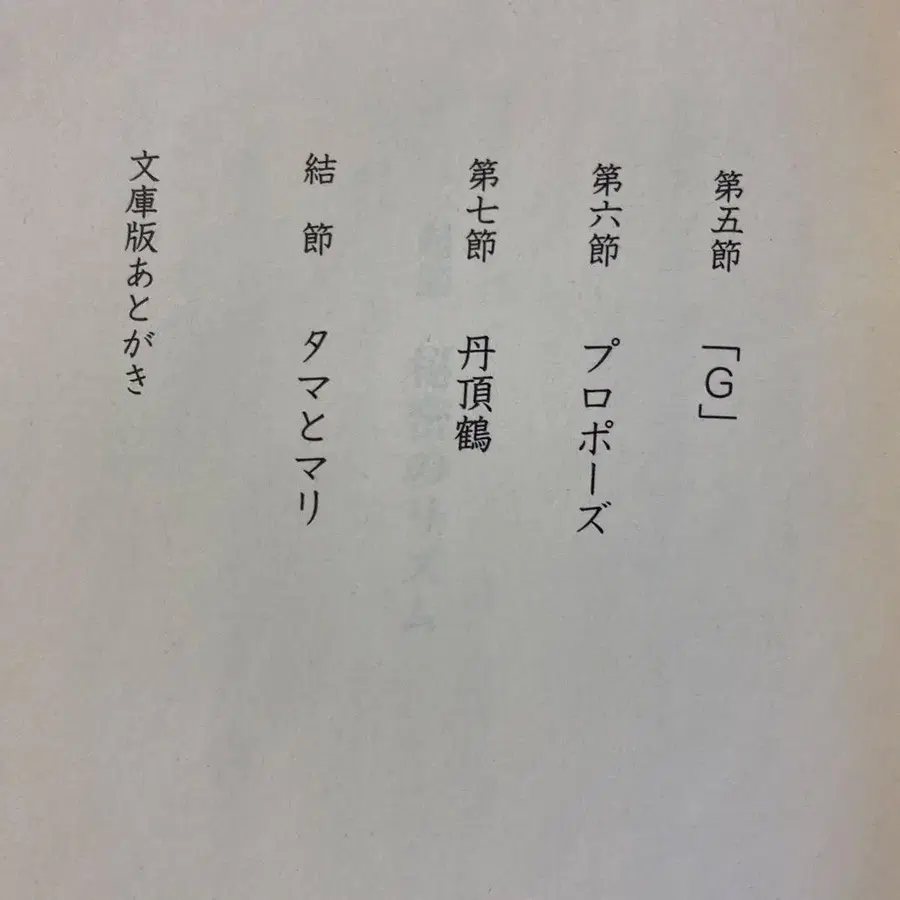 第五節 「G」
第六節 プロポーズ
第七節 丹頂鶴
結節 タマとマリ
文庫版あとがき